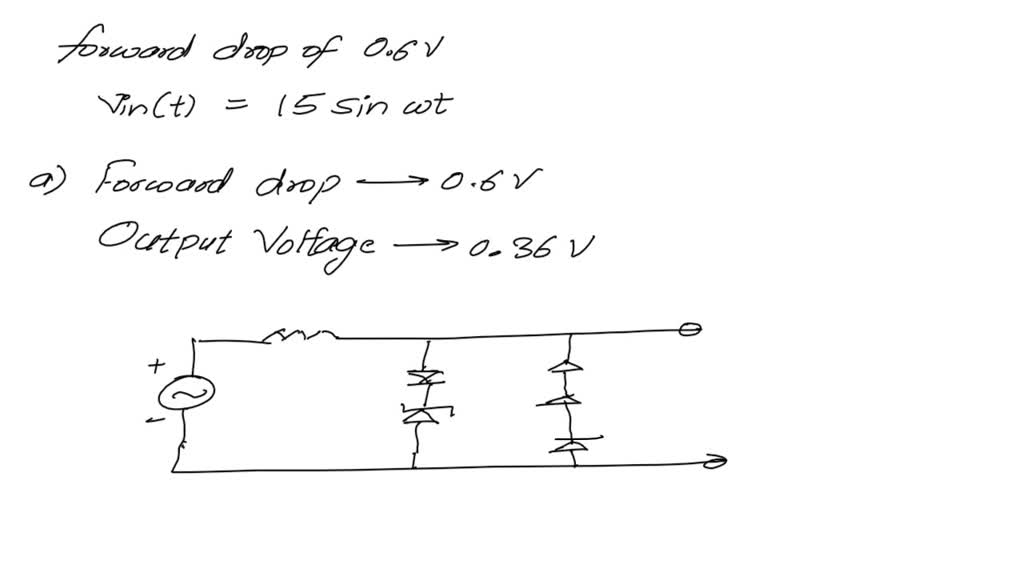 forward drop of 0.6V
Vin(t) = 15 sin wt
a) Forward drop → 0.6 V
Output Voltage → 0.36 V
+
-